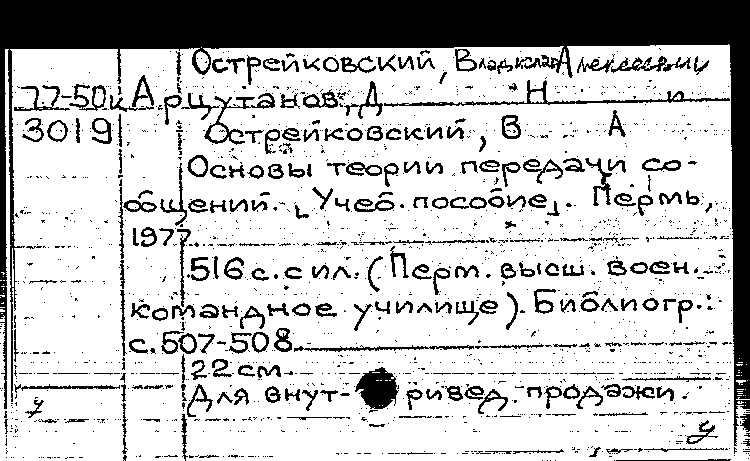 Острейковский, Владислав Алексеевич
77-50к Арцутанов, Д Н и
3019 Острейковский, В А
Основы теории передачи со-
общений. [Учеб. пособие]. Пермь,
1977.
516 с. с ил. (Перм. высш. воен.
командное училище). Библиогр.:
с. 507-508.
22 см.
Для внут- ривед. продажи.
у
у